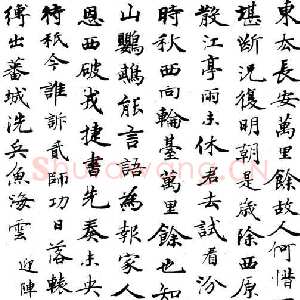 東去長安萬里餘故人何惜
堪斷況復明朝是歲除西原
散江亭雨未休君去試看汾
時秋西向輪臺萬里餘也知
山鸚鵡能言語為報家人
恩西破戎捷書先奏未央
待祇今誰訴貳師功日落轅
縛出蕃城洗兵魚海雲迎陣